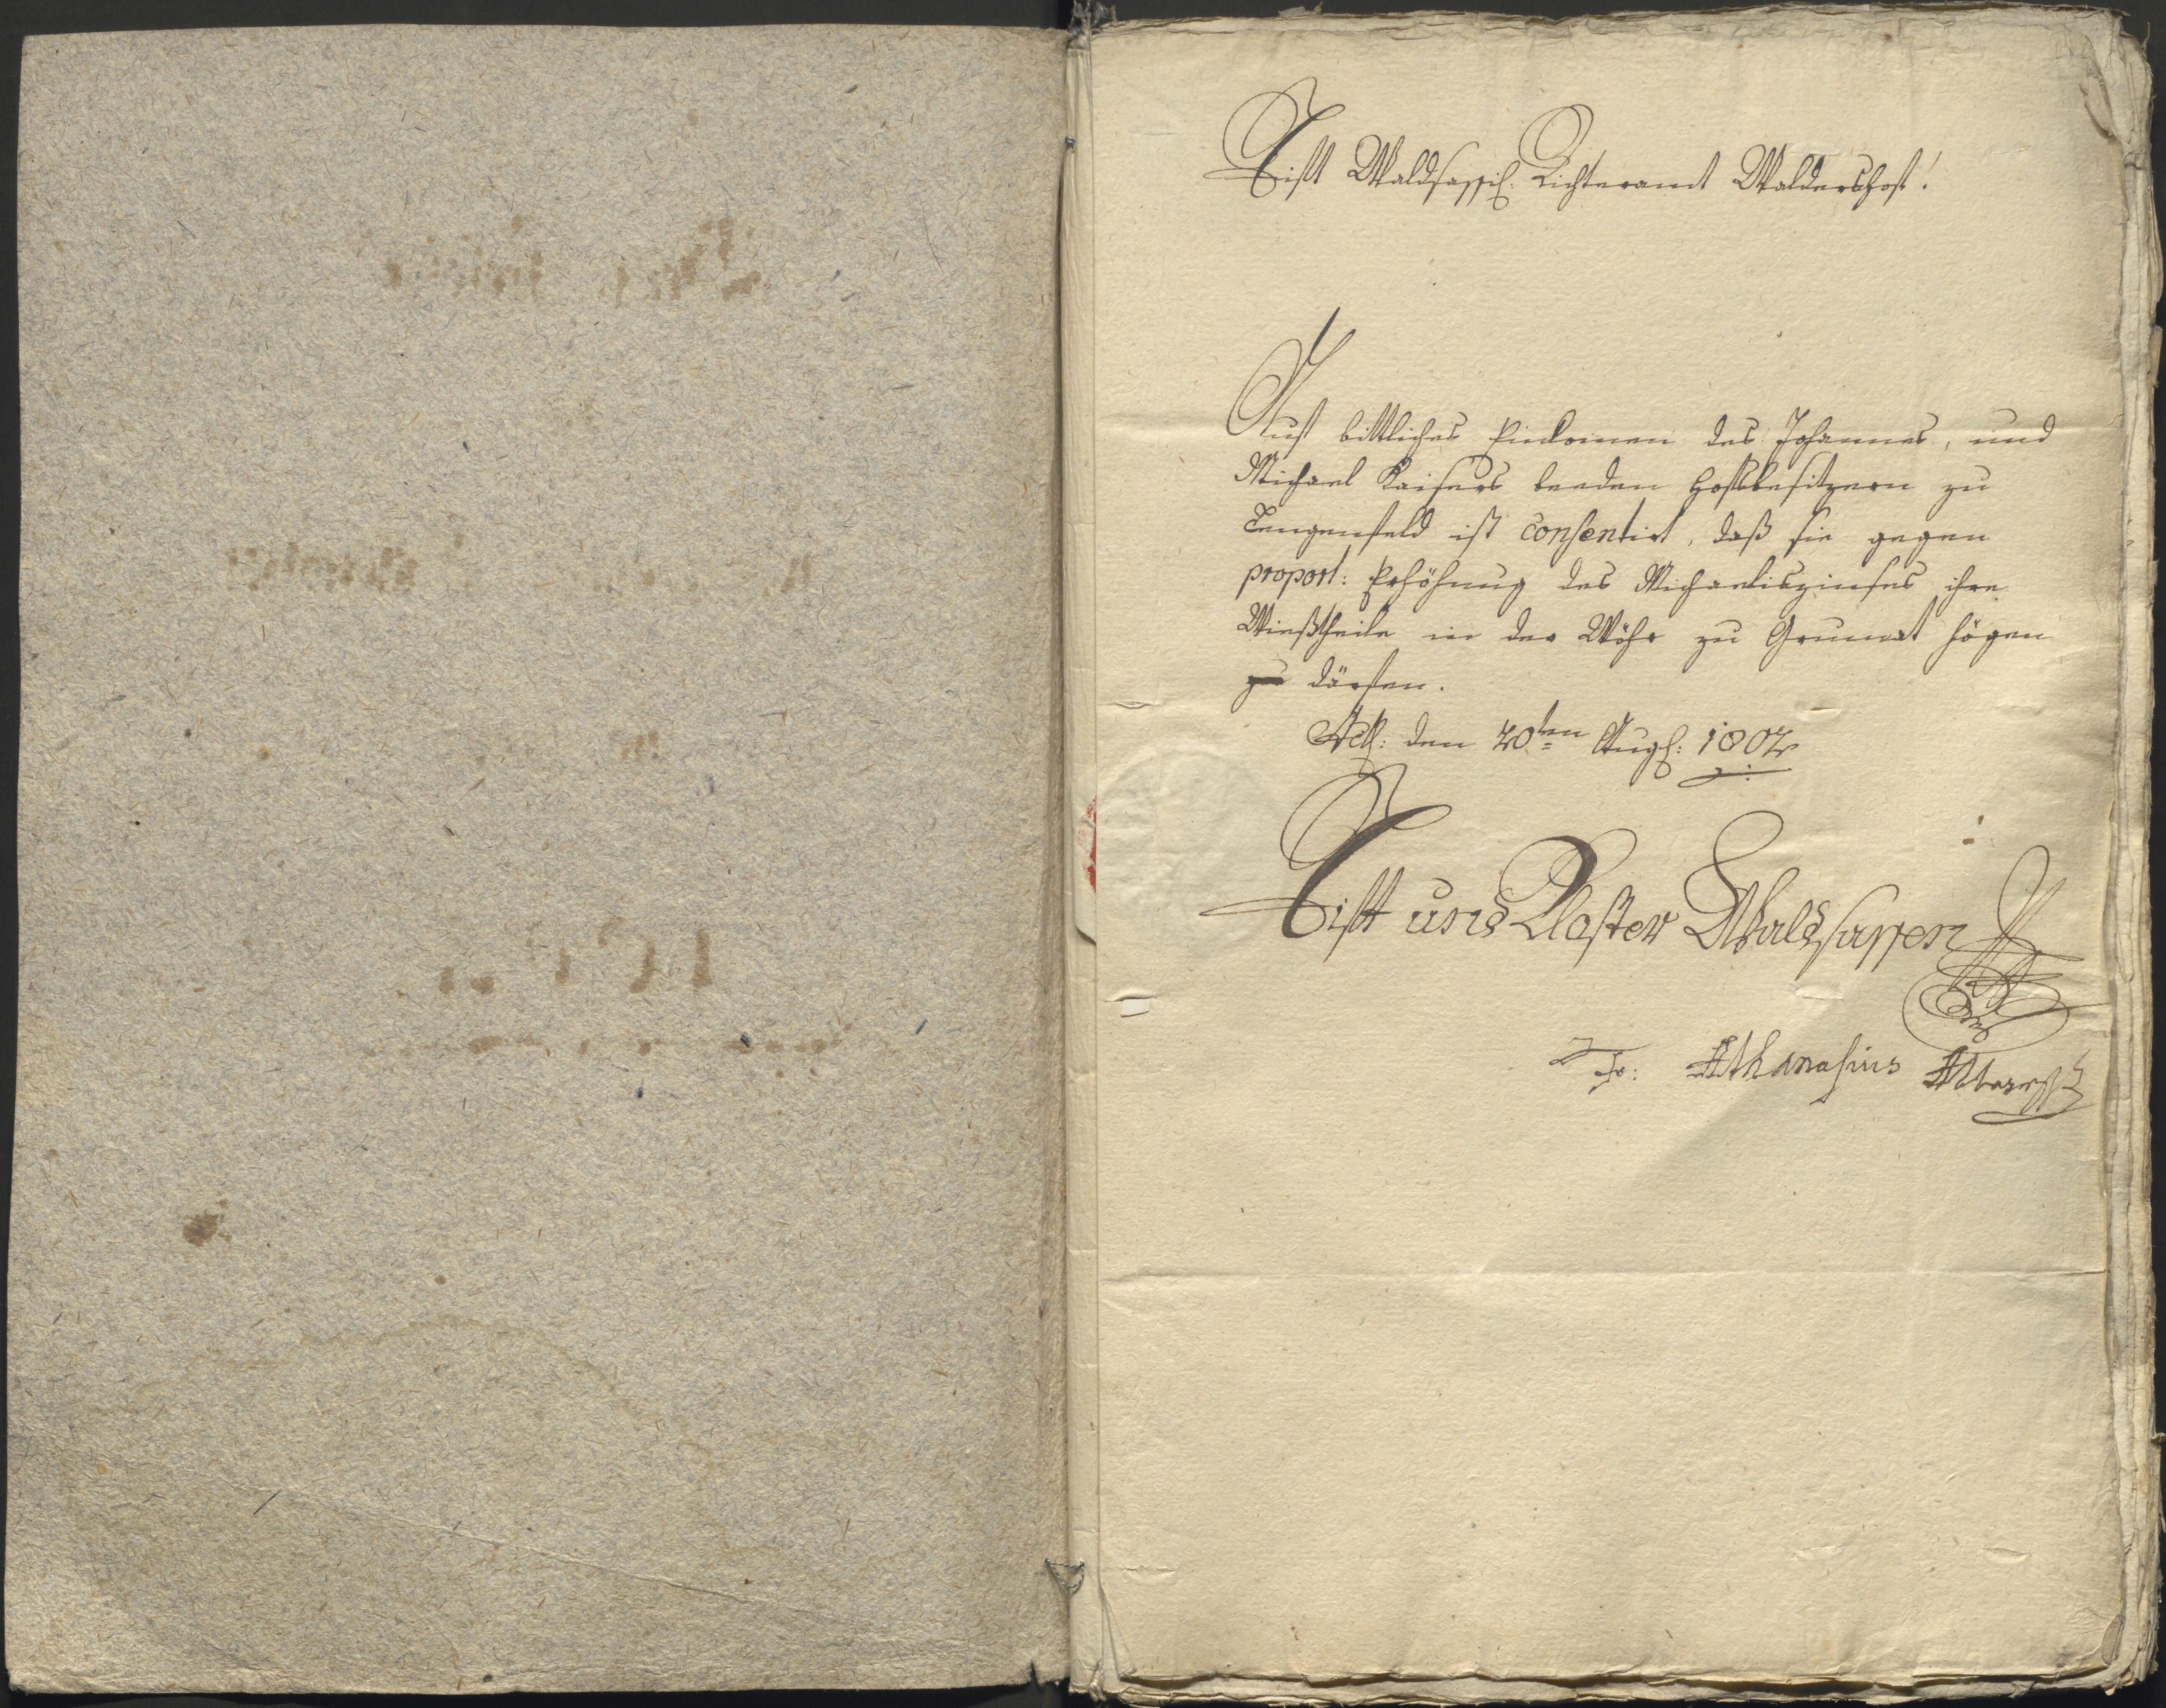 Stift Waldsassisch. Richteramt Waldershof!
Auf bittliches Einkomen des Johannes, und
Michael Kaisers beeden Hofsbesitzern zu
Lengenfeld ist consentirt, daß sie gegen
proport: Erhöhung des Michaeliszinses ihre
Wießtheile in der Wöhr zu Grumat högen
zu därfen.
Act: den 20ten Augst: 1802
Stift und Kloster Waldsassen
Fr: Athanasius Abt